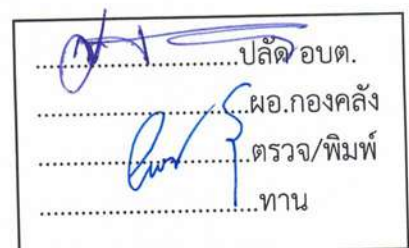 ....................ปลัด อบต.
....................ผอ.กองคลัง
....................ตรวจ/พิมพ์
....................ทาน